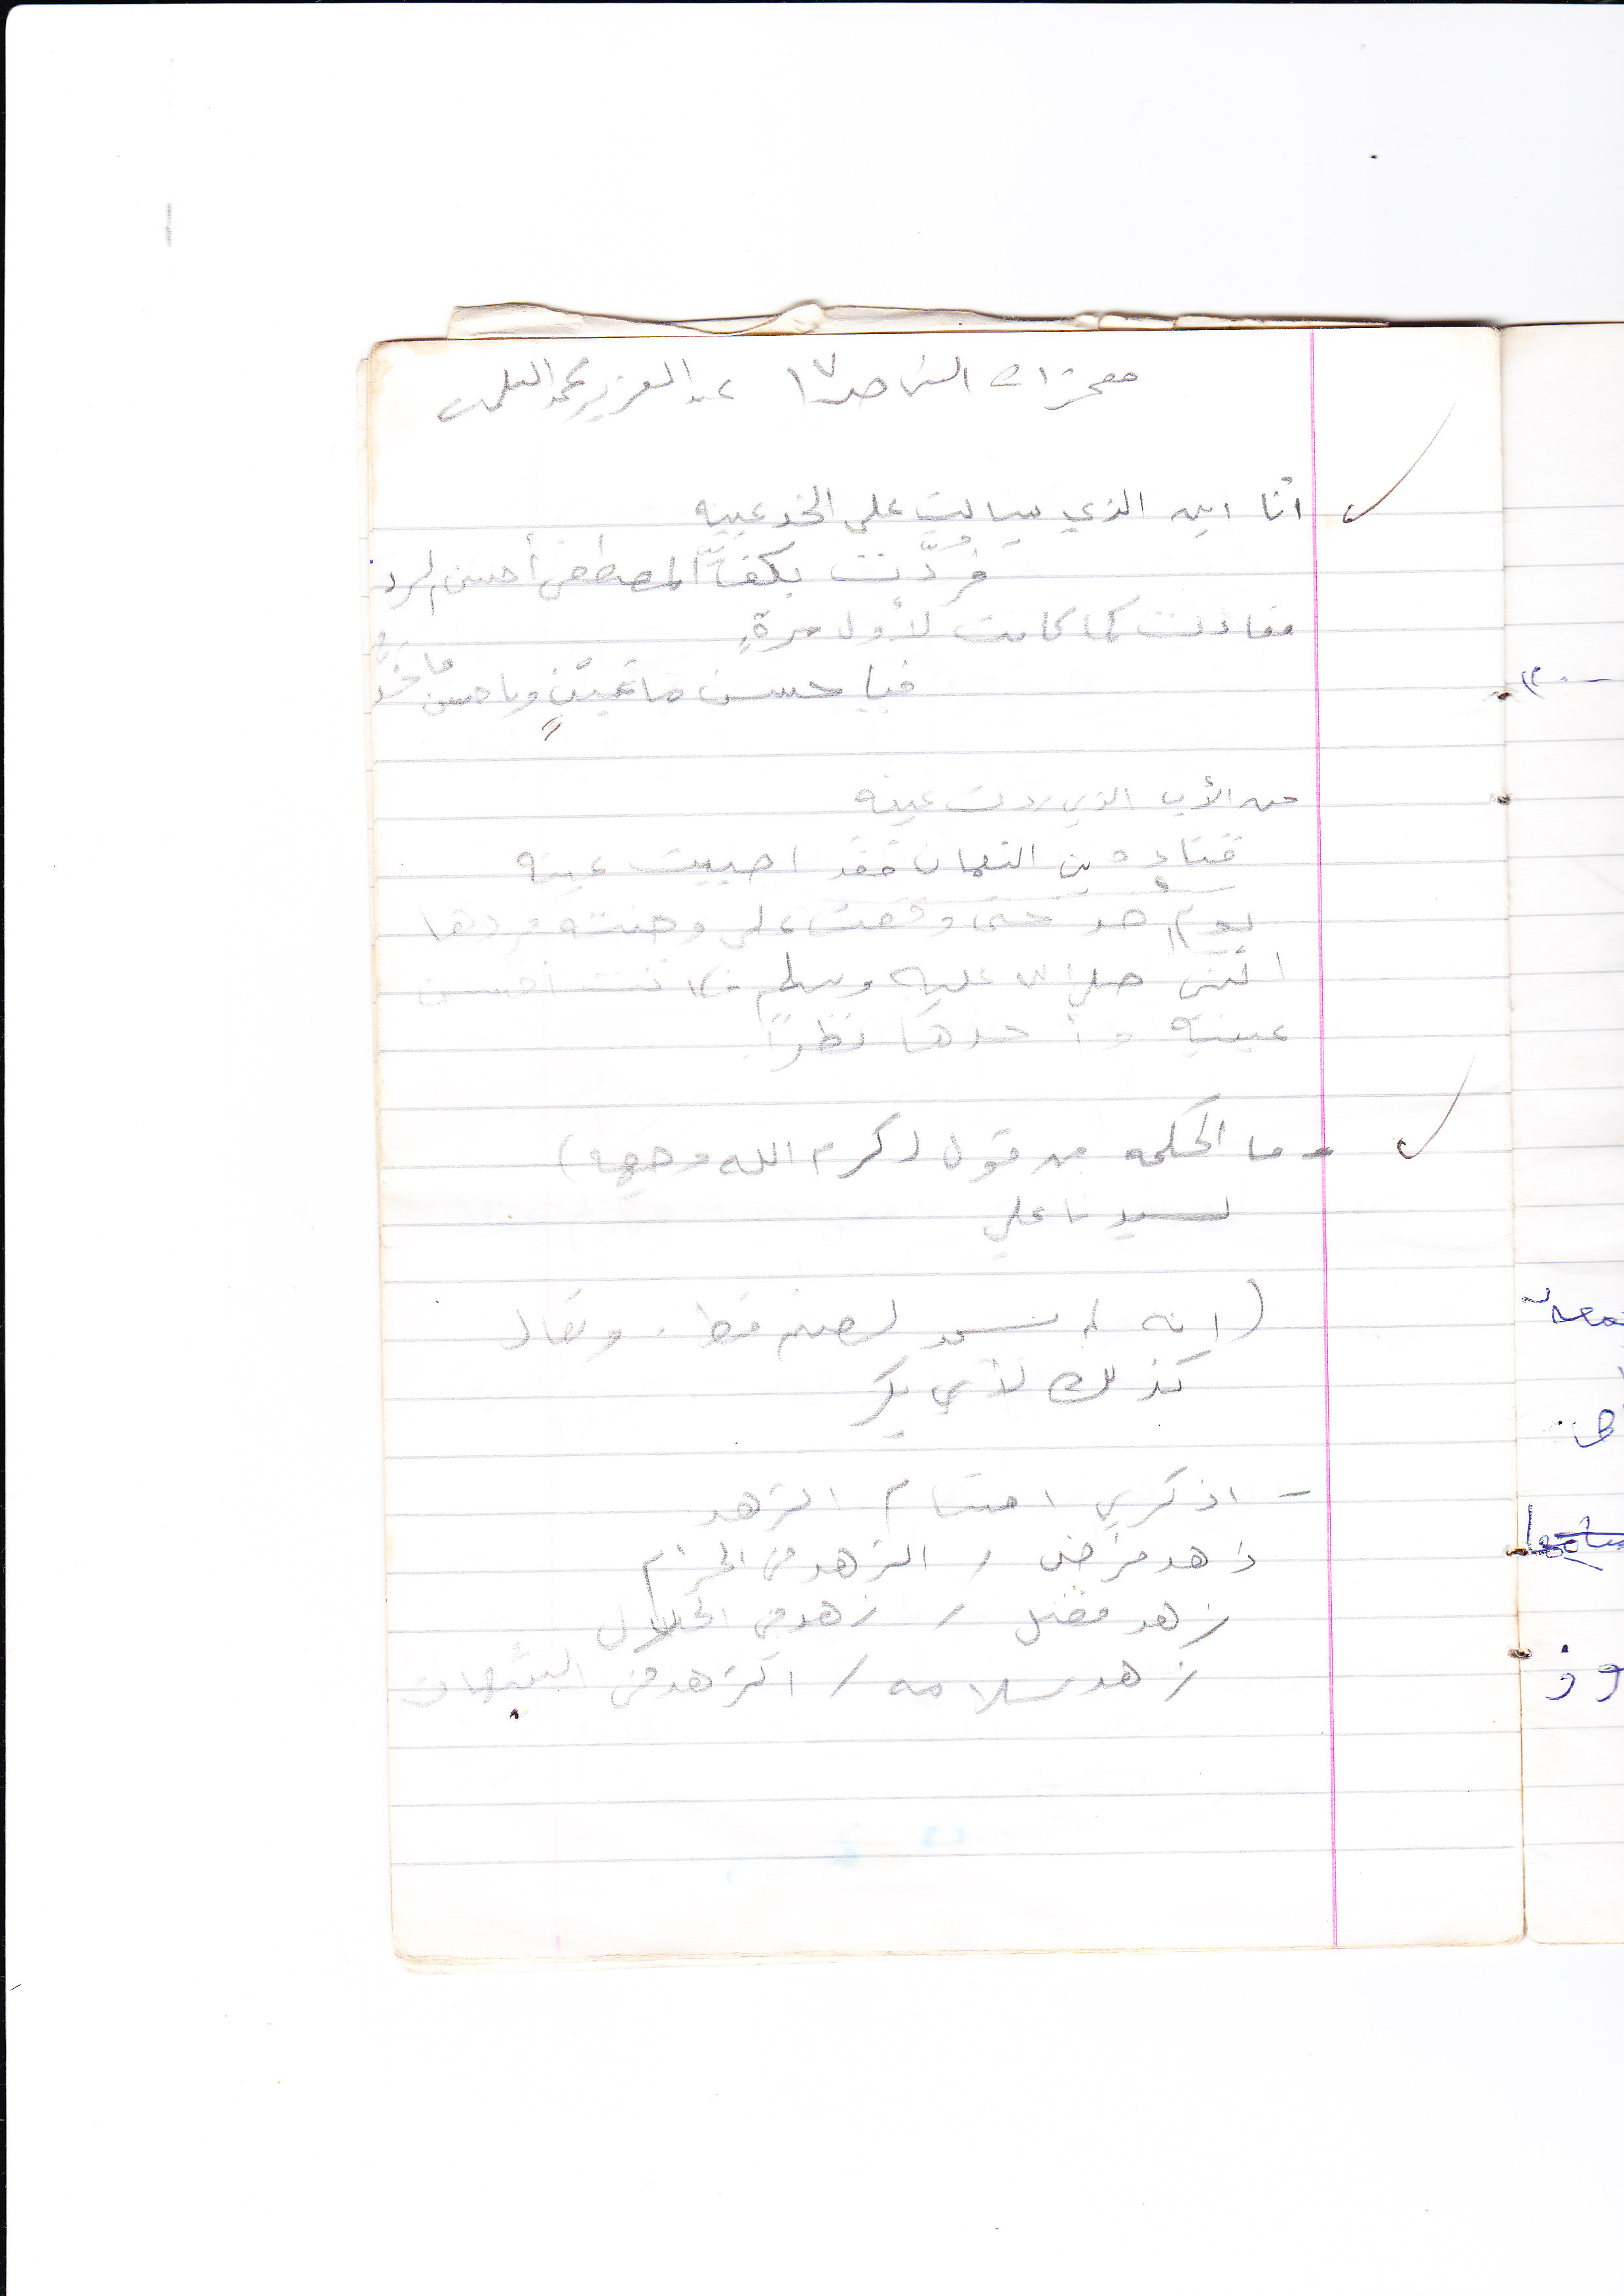 معجزات النبي ص ١٧ عبد العزيز محمد السلمان
انا ابن الذي سالت على الخد عينه
فردَّت بكفِّ المصطفى أحسن الرد
فعادت كما كانت لأول مرةٍ
فيا حسن ما عينٍ ويا حسن ما خدٍ
من الأب الذي ردت عينه
قتاده بن النعمان فقد اصيبت عينه
يوم احد حتى وقعت على وجنته فردها
النبي صلى الله عليه وسلم فكانت أحسن
عينيه وأحدها نظراً.
- ما الحكمه من قول (كرم الله وجهه)
لسيدنا علي
(انه لم يسجد لصنم قط. ويقال
كذلك لأبي بكر
- اذكري اقسام الزهد
زهد فرض / الزهد في الحرام
زهد فضل / زهد في الحلال
زهد سلامه / الزهد في الشبهات